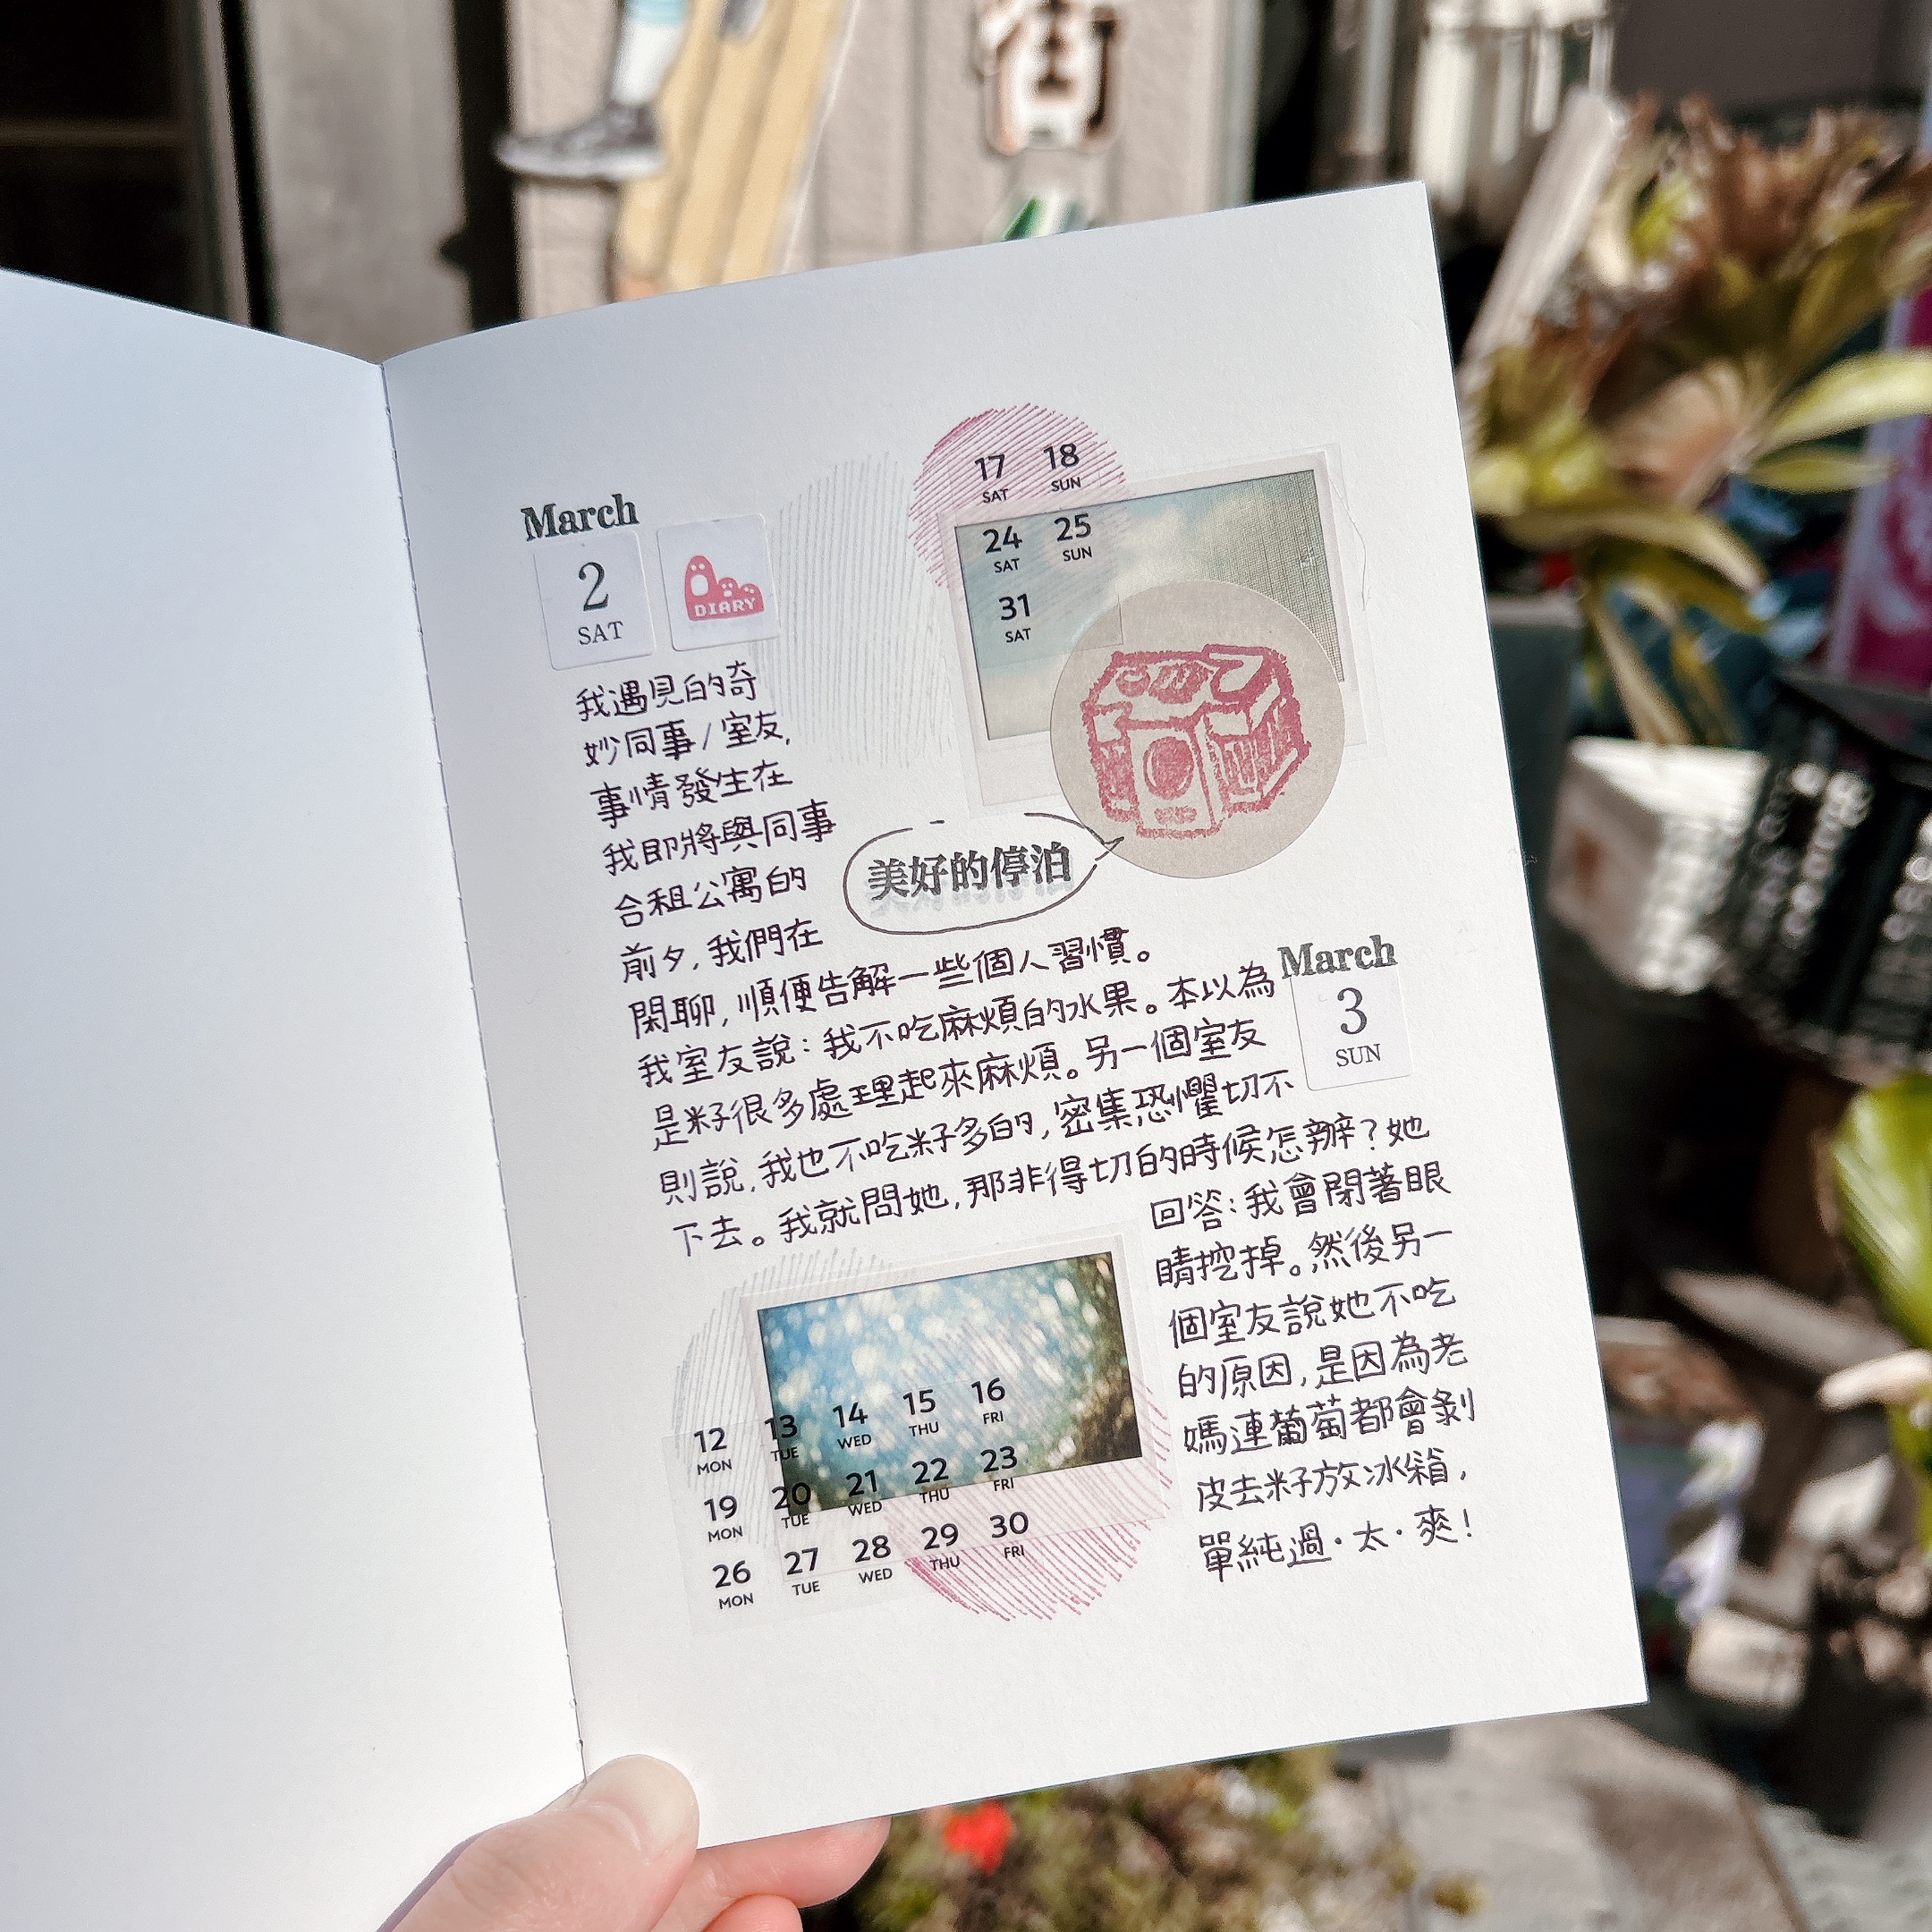 March
2
SAT
DIARY
17 18
SAT SUN
24 25
SAT SUN
31
SAT
我遇見的奇
妙同事/室友,
事情發生在
我即將與同事
合租公寓的
前夕,我們在
美好的停泊
閑聊,順便告解一些個人習慣。
我室友說:我不吃麻煩的水果。本以為
是籽很多處理起來麻煩。另一個室友
則說,我也不吃籽多的,密集恐懼切不
下去。我就問她,那非得切的時候怎辦?她
March
3
SUN
回答:我會閉著眼
睛挖掉。然後另一
個室友說她不吃
的原因,是因為老
媽連葡萄都會剝
皮去籽放冰箱,
單純過·太·爽!
12 13 14 15 16
MON TUE WED THU FRI
19 20 21 22 23
MON TUE WED THU FRI
26 27 28 29 30
MON TUE WED THU FRI